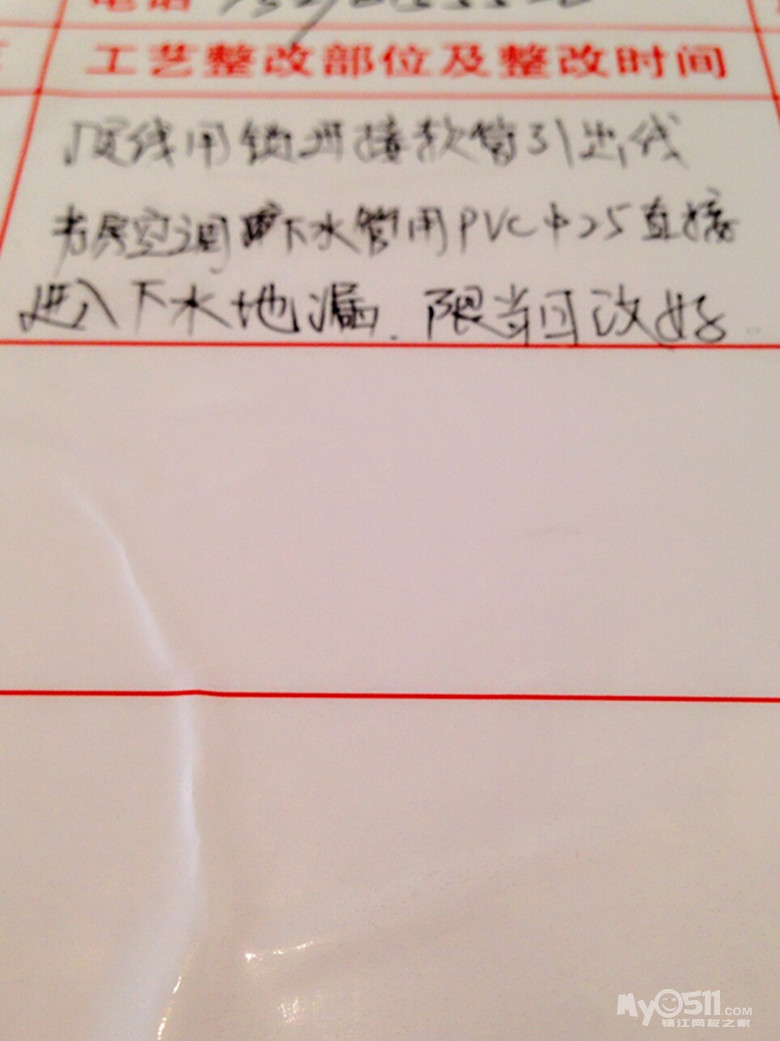 电话
工艺整改部位及整改时间
顶线用锁母接软管引出线
书房空调下水管用PVCΦ25直接
进入下水地漏.限当日改好.
My0511.COM
镇江网友之家